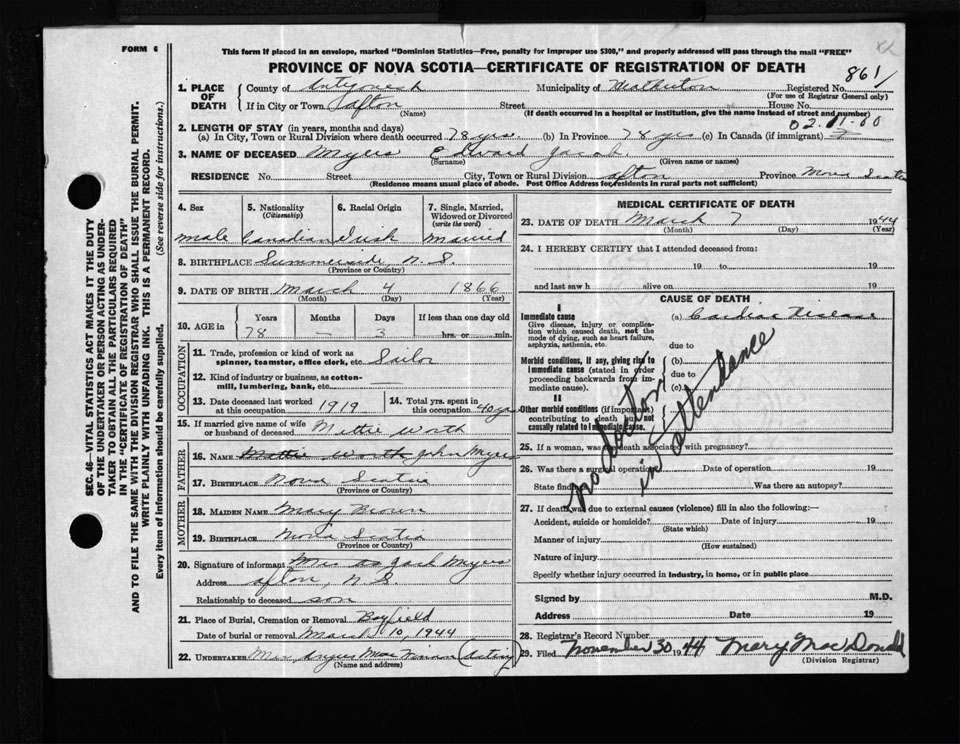 FORM 6
This form if placed in an envelope, marked "Dominion Statistics—Free, penalty for improper use $300," and properly addressed will pass through the mail "FREE"
PROVINCE OF NOVA SCOTIA—CERTIFICATE OF REGISTRATION OF DEATH
861
SEC. 46—VITAL STATISTICS ACT MAKES IT THE DUTY
OF THE UNDERTAKER OR PERSON ACTING AS UNDER-
TAKER TO OBTAIN ALL THE PARTICULARS REQUIRED
IN THE "CERTIFICATE OF REGISTRATION OF DEATH"
AND TO FILE THE SAME WITH THE DIVISION REGISTRAR WHO SHALL ISSUE THE BURIAL PERMIT.
WRITE PLAINLY WITH UNFADING INK. THIS IS A PERMANENT RECORD.
Every item of information should be carefully supplied. (See reverse side for instructions.)
1. PLACE OF DEATH
County of Antigonish Municipality of Heatherton Registered No.
(For use of Registrar General only)
If in City or Town Afton Street House No.
(Name) (If death occurred in a hospital or institution, give the name instead of street and number)
02-11-00
2. LENGTH OF STAY (in years, months and days)
(a) In City, Town or Rural Division where death occurred 78 yrs. (b) In Province 78 yrs (c) In Canada (if immigrant)
3. NAME OF DECEASED Myers Edward Jacob
(Surname) (Given name or names)
RESIDENCE No. Street City, Town or Rural Division Afton Province Nova Scotia
(Residence means usual place of abode. Post Office Address for residents in rural parts not sufficient)
4. Sex 5. Nationality (Citizenship) 6. Racial Origin 7. Single, Married, Widowed or Divorced (write the word)
male Canadian Irish Married
8. BIRTHPLACE Summerside N.S.
(Province or Country)
9. DATE OF BIRTH March 4 1866
(Month) (Day) (Year)
10. AGE in Years Months Days If less than one day old
78 — 3 hrs. or min.
OCCUPATION
11. Trade, profession or kind of work as spinner, teamster, office clerk, etc. Sailor
12. Kind of industry or business, as cotton-mill, lumbering, bank, etc. —
13. Date deceased last worked at this occupation 1919 14. Total yrs. spent in this occupation 40 yrs
15. If married give name of wife or husband of deceased Mattie Worth
FATHER
16. NAME Mattie Worth John Myers
17. BIRTHPLACE Nova Scotia
(Province or Country)
MOTHER
18. MAIDEN NAME Mary Brown
19. BIRTHPLACE Nova Scotia
(Province or Country)
20. Signature of informant Mrs Jack Myers
Address Afton, N.S.
Relationship to deceased son
21. Place of Burial, Cremation or Removal Bayfield
Date of burial or removal March 10, 1944
22. UNDERTAKER Mrs Angus (Acting)
(Name and address)
MEDICAL CERTIFICATE OF DEATH
23. DATE OF DEATH March 7 1944
(Month) (Day) (Year)
24. I HEREBY CERTIFY that I attended deceased from:
19 to 19
and last saw h alive on 19
CAUSE OF DEATH
I
Immediate cause (a) Cardiac Disease
Give disease, injury or complication which caused death, not the mode of dying, such as heart failure, asphyxia, asthenia, etc.
due to
Morbid conditions, if any, giving rise to immediate cause (stated in order proceeding backwards from immediate cause).
(b)
due to
(c)
II
Other morbid conditions (if important) contributing to death but not causally related to immediate cause.
no doctor
in attendance
25. If a woman, was the death associated with pregnancy?
26. Was there a surgical operation Date of operation 19
State findings Was there an autopsy?
27. If death was due to external causes (violence) fill in also the following:—
Accident, suicide or homicide? Date of injury 19
(State which)
Manner of injury
(How sustained)
Nature of injury
Specify whether injury occurred in industry, in home, or in public place
Signed by M.D.
Address Date 19
28. Registrar's Record Number
29. Filed November 30 1944 Mary MacDonald
(Division Registrar)